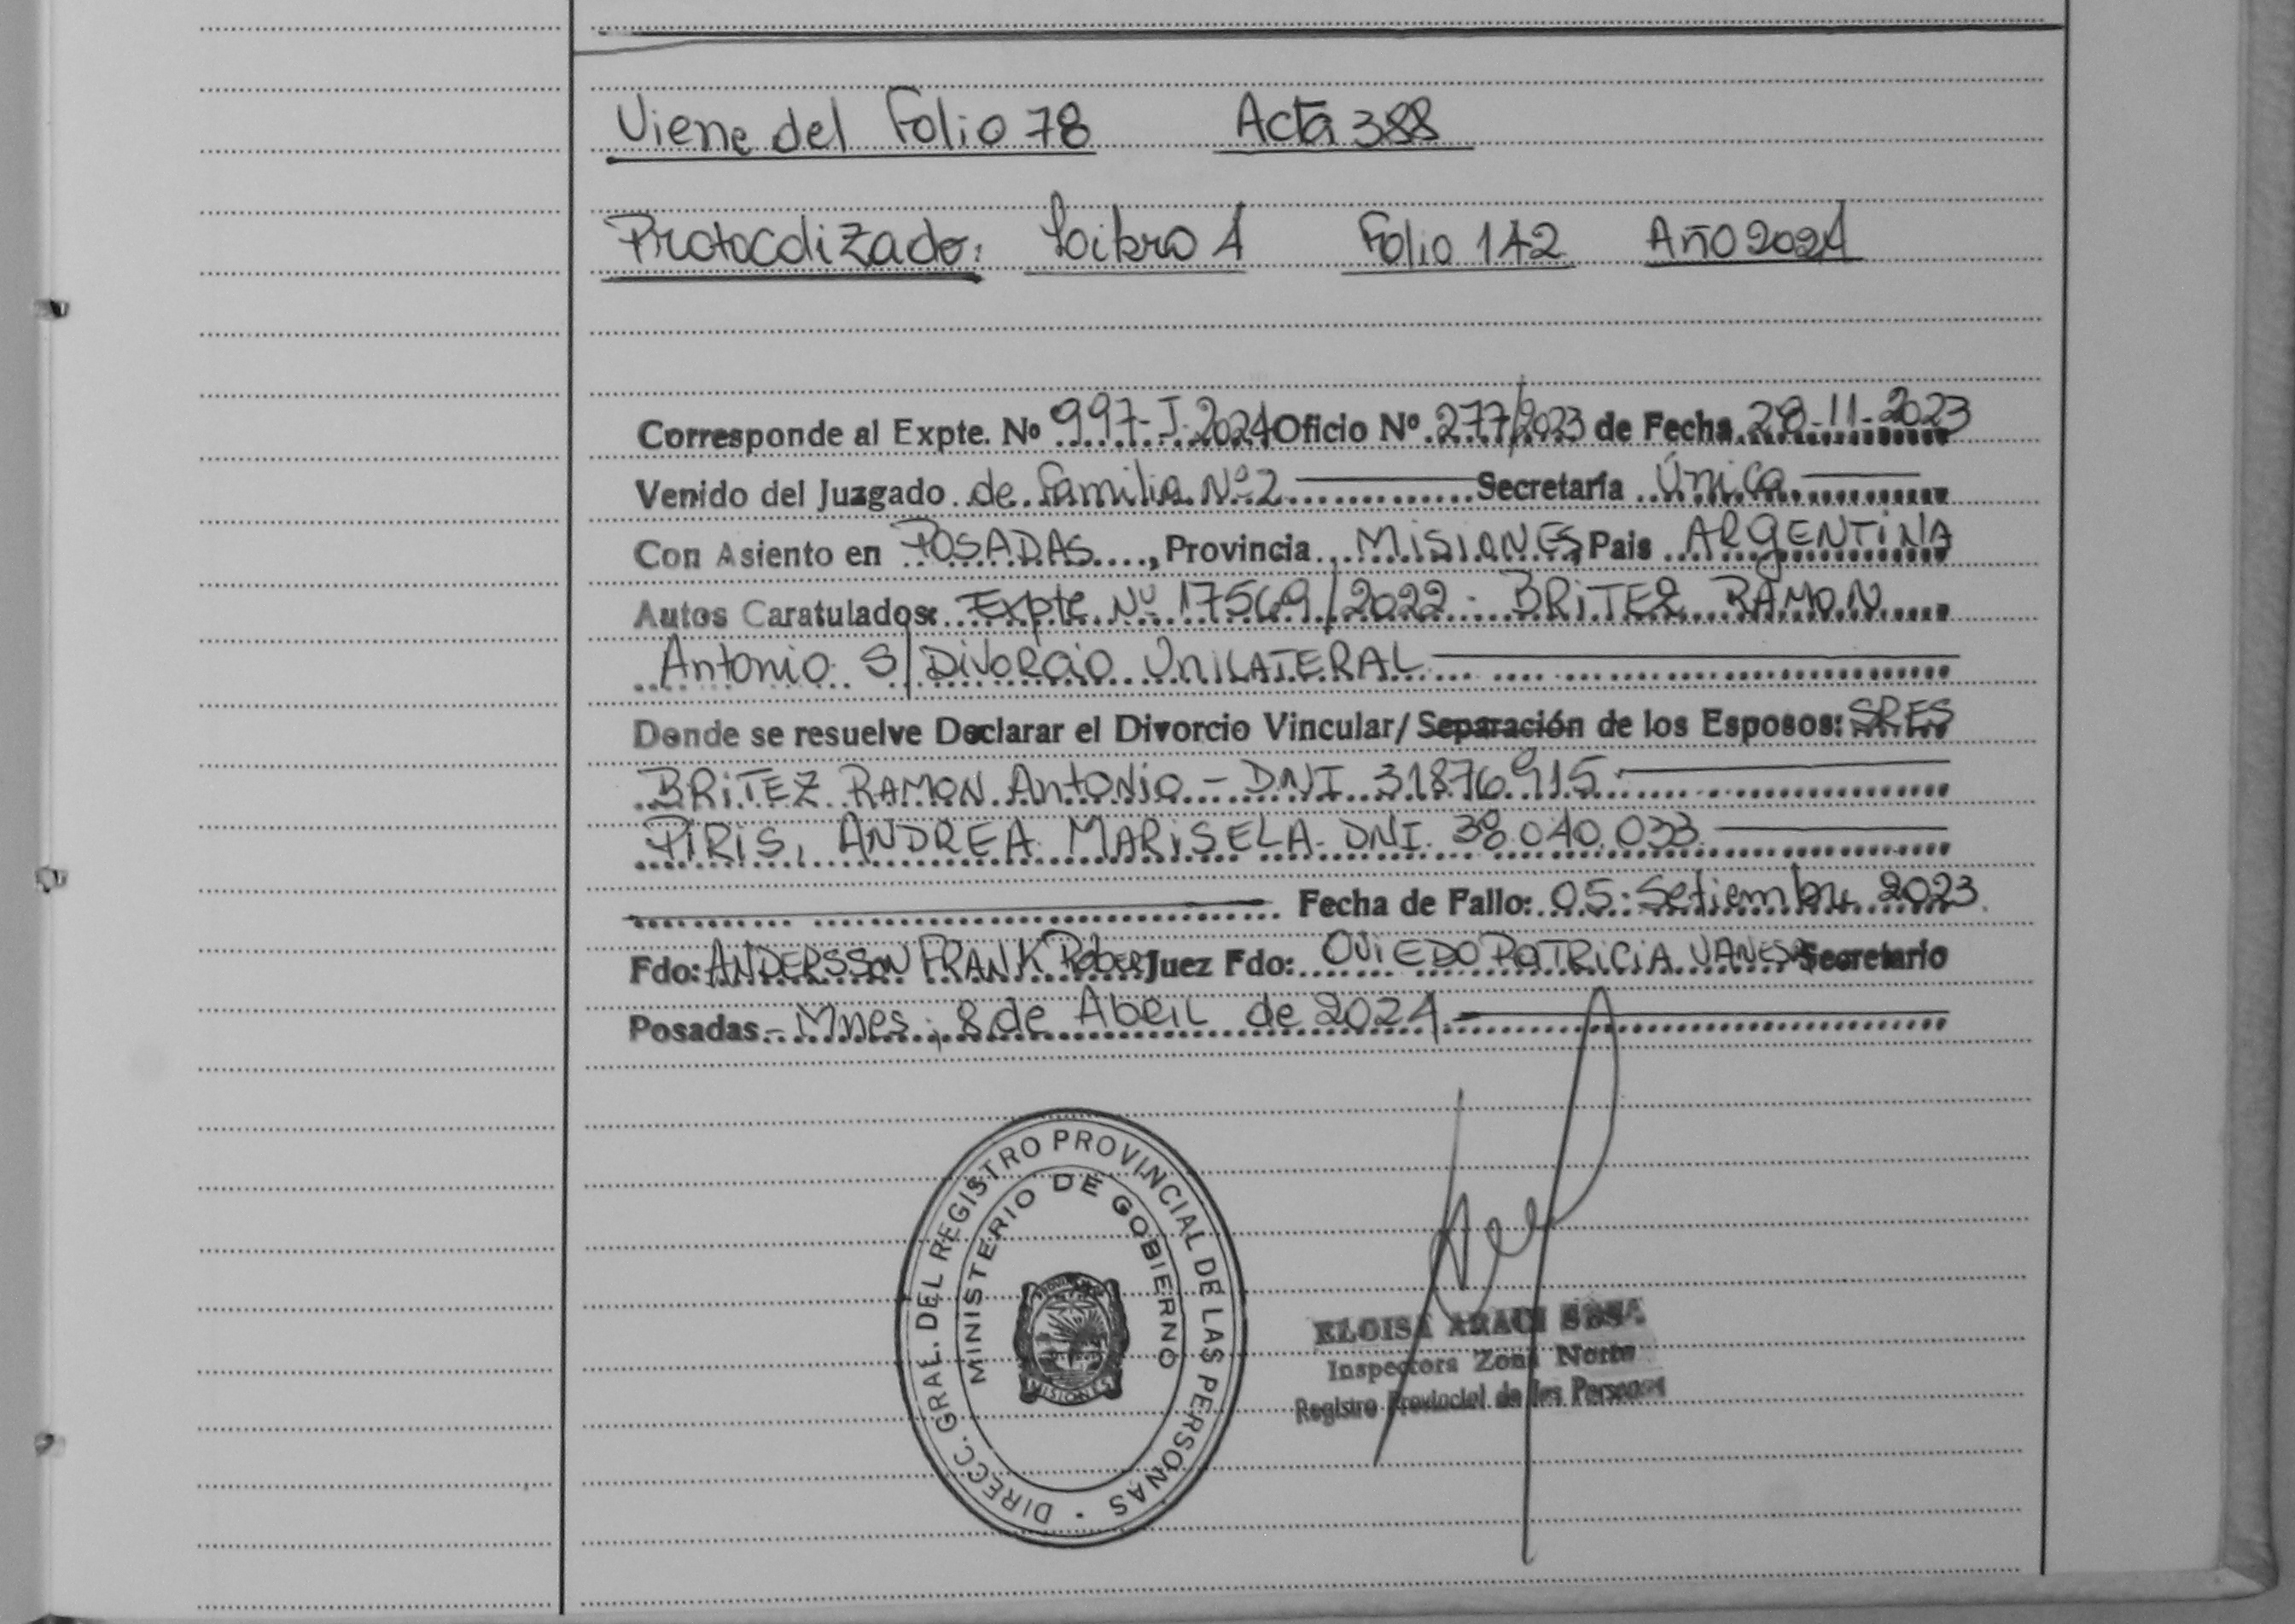 Viene del Folio 78 Acta 388
Protocolizado: Libro 1 Folio 142 Año 2024
Corresponde al Expte. Nº 997-J-2024 Oficio Nº 277/2023 de Fecha 28-11-2023
Venido del Juzgado de Familia Nº 2 Secretaría Única
Con Asiento en POSADAS, Provincia MISIONES, Pais ARGENTINA
Autos Caratulados: Expte Nº 17569/2022 - BRITEZ RAMON
Antonio S/ Divorcio UNILATERAL
Donde se resuelve Declarar el Divorcio Vincular/Separación de los Esposos: SRES
BRITEZ RAMON Antonio - DNI 31876915
PIRIS, ANDREA MARISELA - DNI. 38.040.033
Fecha de Fallo: 05 Setiembre 2023
Fdo: ANDERSSON FRANK Robert Juez Fdo: OVIEDO PATRICIA VANESA Secretario
Posadas - Mnes, 8 de Abril de 2024
DIRECC. GRAL. DEL REGISTRO PROVINCIAL DE LAS PERSONAS
MINISTERIO DE GOBIERNO
MISIONES
ELOISA ARACI SOSA
Inspectora Zona Norte
Registro Provincial de las Personas